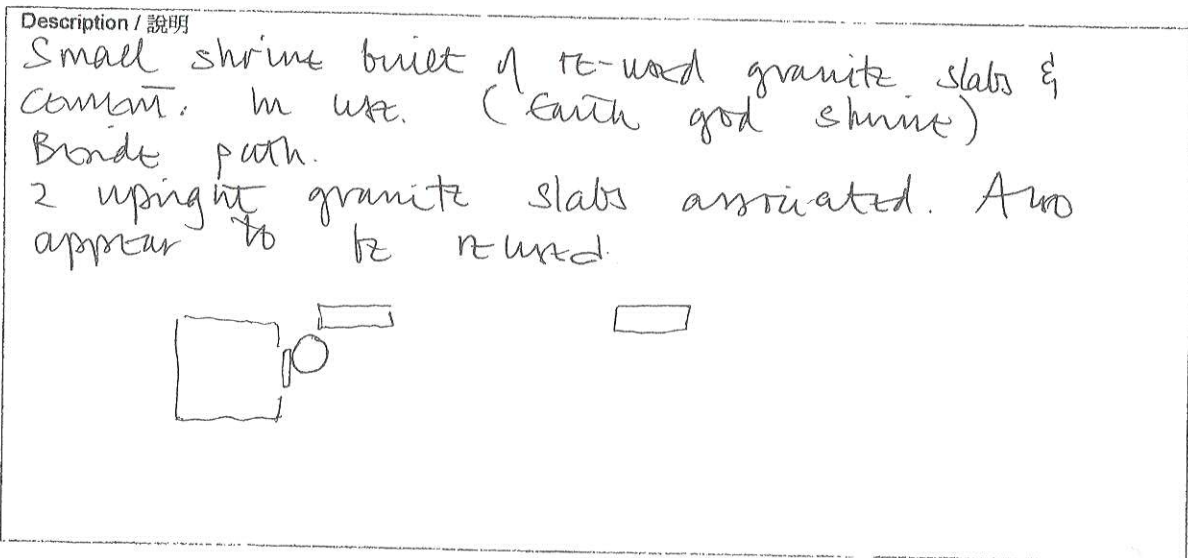 Description / 說明
Small shrine built of re-used granite slabs &
cement. In use. (Earth god shrine)
Beside path.
2 upright granite slabs associated. Also
appear to be reused.